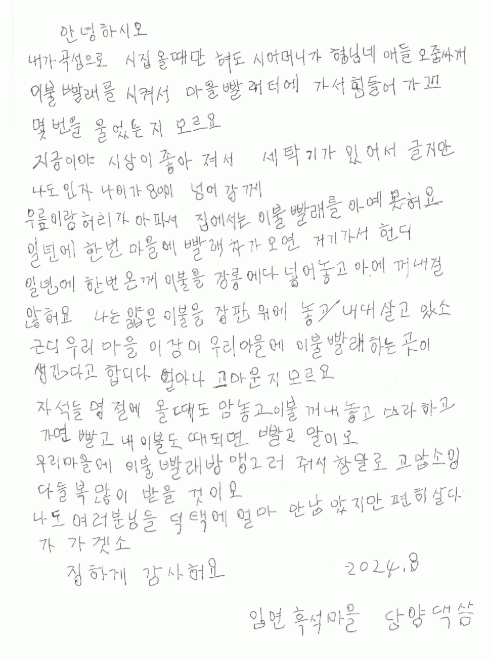 안녕하시오
내가 곡성으로 시집올때만 혀도 시어머니가 형님네 애들 오줌싸개
이불 빨래를 시켜서 마을 빨래터에 가서 힘들어 가꼬
몇번을 울었는지 모르요
지금이야 시상이 좋아 져서 세탁기가 있어서 글지만
나도 인자 나이가 80이 넘어강께
무릎이랑 허리가 아파서 집에서는 이불 빨래를 아예 못혀요
일년에 한번 마을에 빨래차가 오면 거기가서 헌디
일년에 한번 온께 이불을 장롱에다 넣어놓고 아예 꺼내질
않혀요 나는 얇은 이불을 장판 위에 놓고 내내 살고 있소
근디 우리 마을 이장이 우리마을에 이불 빨래하는 곳이
생긴다고 합디다 얼마나 고마운지 모르요
자석들 명절에 올때도 맘놓고 이불 꺼내놓고 쓰라하고
가면 빨고 내 이불도 때되면 빨고 말이오
우리마을에 이불 빨래방 맹그러 줘서 참말로 고맙소잉
다들 복 많이 받을 것이오
나도 여러분님들 덕택에 얼마 안남았지만 편히 살다
가 가겟소
집하게 감사혀요 2024.8
입면 흑석마을 담양댁 씀